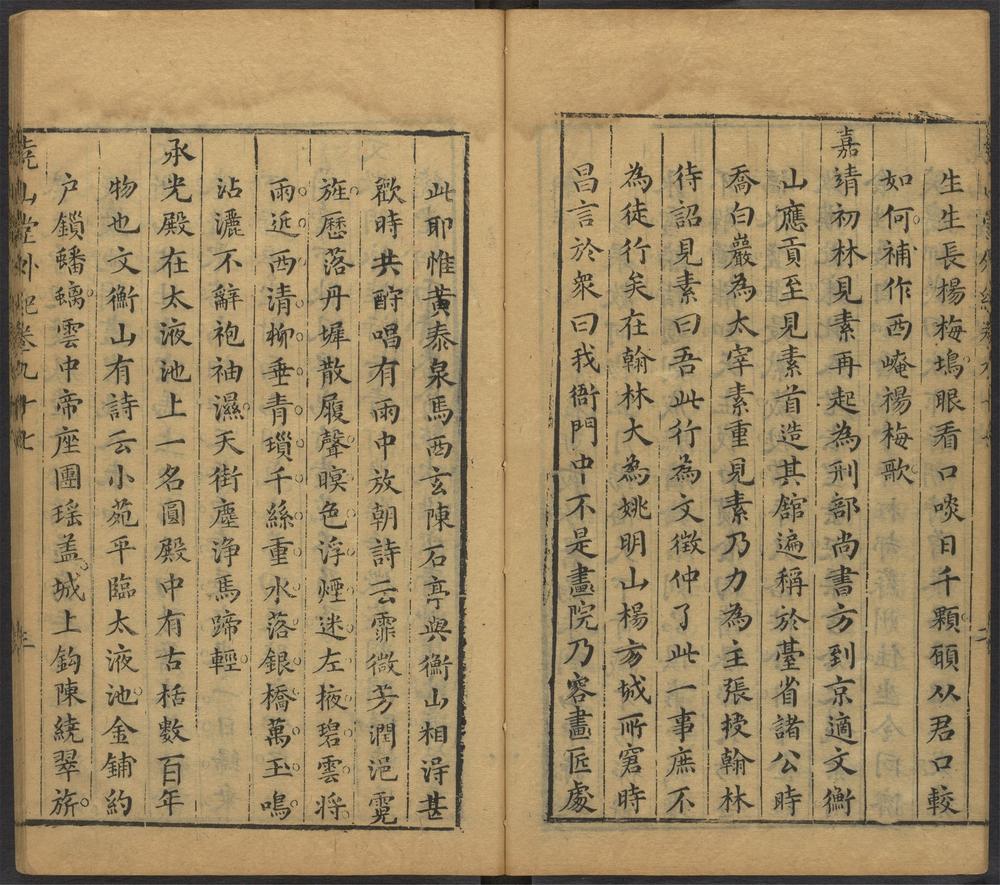 生生長楊梅塢眼看口啖日千顆願从君口較
如何補作西崦楊梅歌
嘉靖初林見素再起為刑部尚書方到京適文衡
山應貢至見素首造其舘遍稱於臺省諸公時
喬白巖為太宰素重見素乃力為主張授翰林
待詔見素曰吾此行為文徵仲了此一事庶不
為徒行矣在翰林大為姚明山楊方城所窘時
昌言於衆曰我衙門中不是畫院乃容畫匠處
此耶惟黃泰泉馬西玄陳石亭與衡山相淂甚
歡時共酧唱有雨中放朝詩云霏微芳潤浥霓
旌歷落丹墀散履聲暝色浮煙迷左掖碧雲将
雨近西清柳垂青瑣千絲重水落銀橋萬玉鳴
沾灑不辭袍袖濕天街塵淨馬蹄輕
承光殿在太液池上一名圓殿中有古栝數百年
物也文衡山有詩云小苑平臨太液池金鋪約
户鎖蟠螭雲中帝座團瑤盖城上鈎陳繞翠旂
堯山堂外紀卷九十七